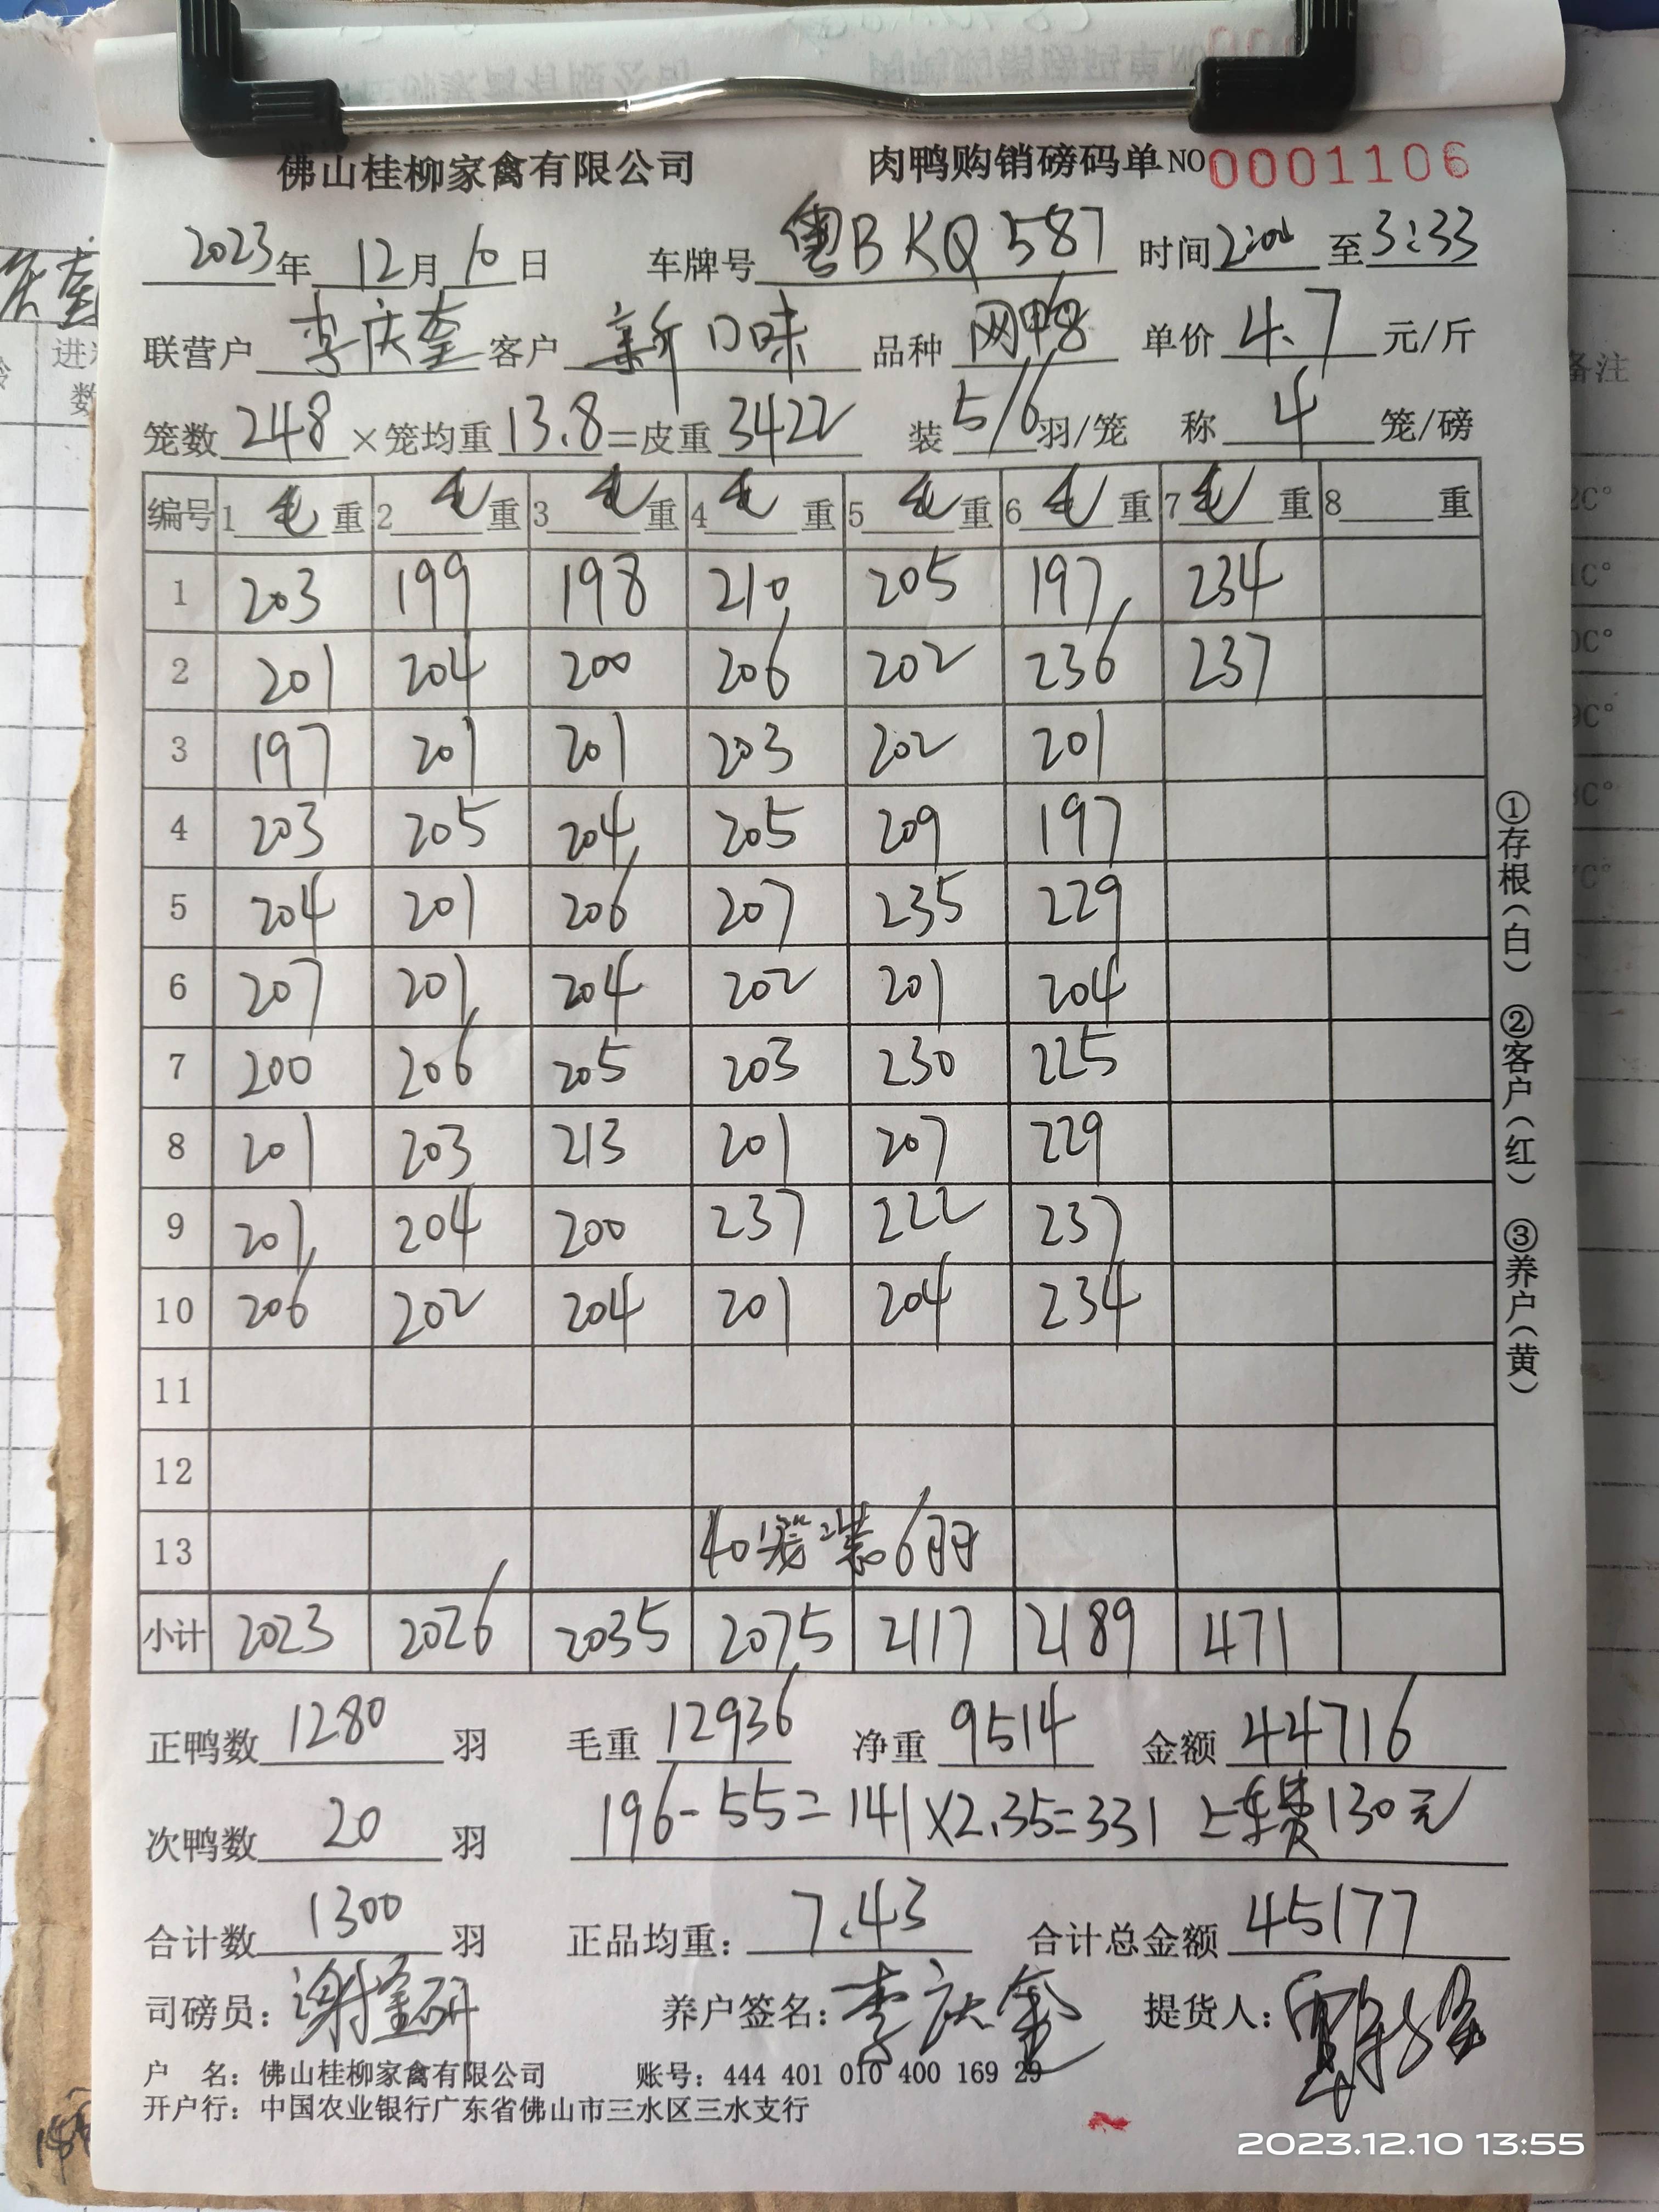 佛山桂柳家禽有限公司 肉鸭购销磅码单NO 0001106
2023年 12月 10日 车牌号 粤BKQ587 时间 2:00 至 3:33
联营户 李庆奎 客户 新口味 品种 网鸭 单价 4.7 元/斤
笼数 248 ×笼均重 13.8 =皮重 3422 装 5/6 羽/笼 称 4 笼/磅
编号 1 毛 重 2 毛 重 3 毛 重 4 毛 重 5 毛 重 6 毛 重 7 毛 重 8 重
1 203 199 198 210 205 197 234
2 201 204 200 206 202 236 237
3 197 201 201 203 202 201
4 203 205 204 205 209 197
5 204 201 206 207 235 229
6 207 201 204 202 201 204
7 200 206 205 203 230 225
8 201 203 213 201 207 229
9 201 204 200 237 222 237
10 206 202 204 201 204 234
11
12
13 40笼装6羽
小计 2023 2026 2035 2075 2117 2189 471
①存根(白) ②客户(红) ③养户(黄)
正鸭数 1280 羽 毛重 12936 净重 9514 金额 44716
次鸭数 20 羽 196-55=141×2.35=331 上车费130元
合计数 1300 羽 正品均重: 7.43 合计总金额 45177
司磅员: 养户签名: 李庆奎 提货人:
户 名: 佛山桂柳家禽有限公司 账号: 444 401 010 400 169 29
开户行: 中国农业银行广东省佛山市三水区三水支行
2023.12.10 13:55